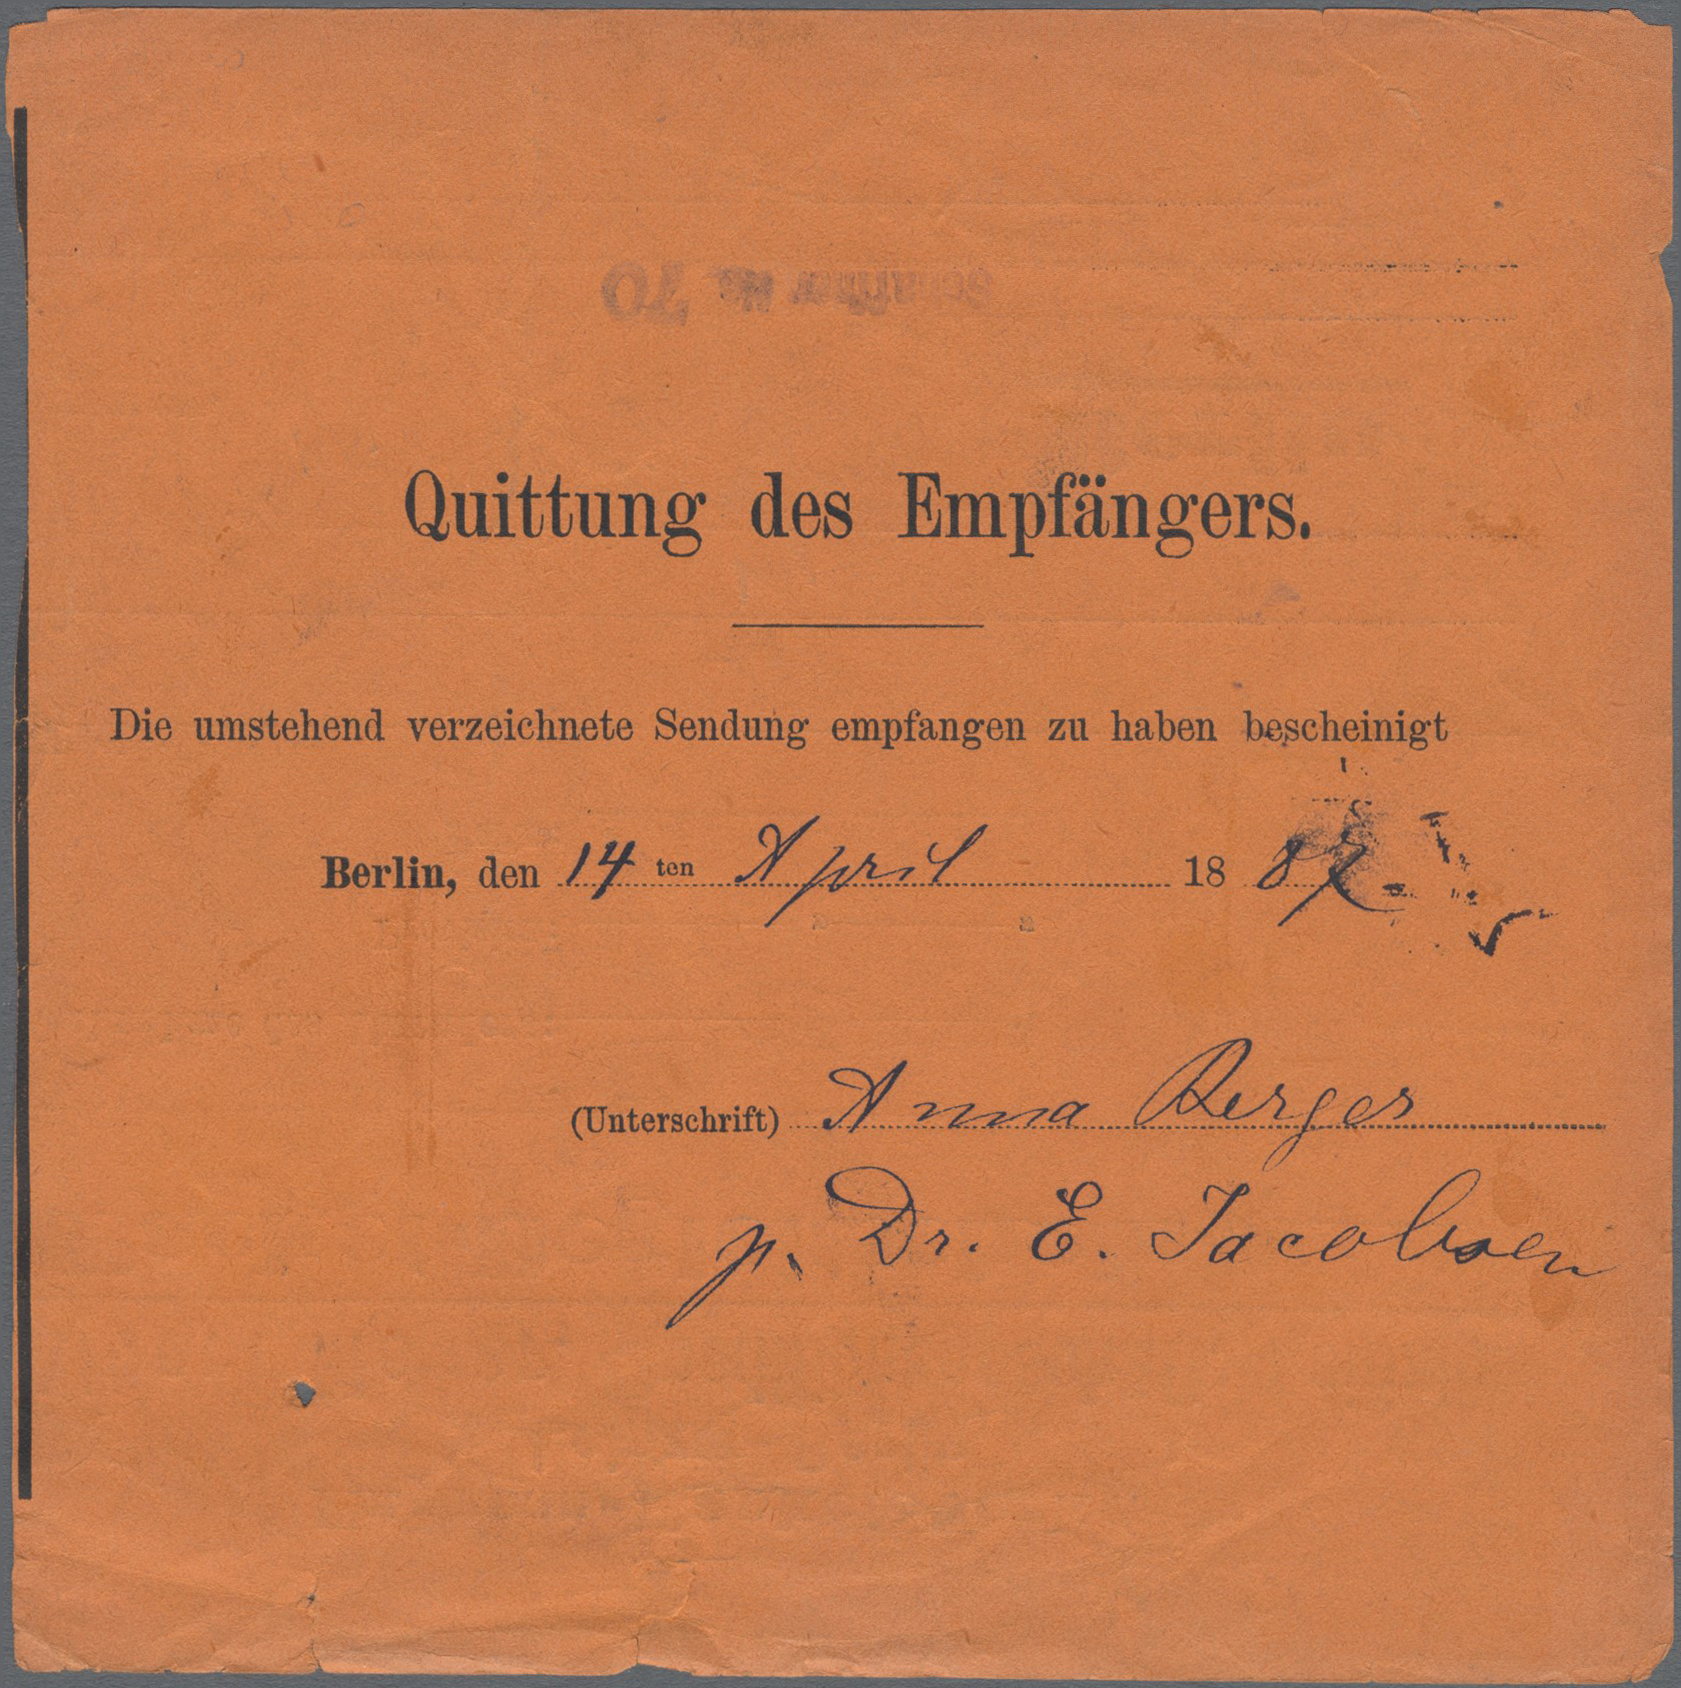 Quittung des Empfängers.
Die umstehend verzeichnete Sendung empfangen zu haben bescheinigt
Berlin, den 14 ten April 18 87
(Unterschrift) Anna Berger
p. Dr. E. Jacobsen